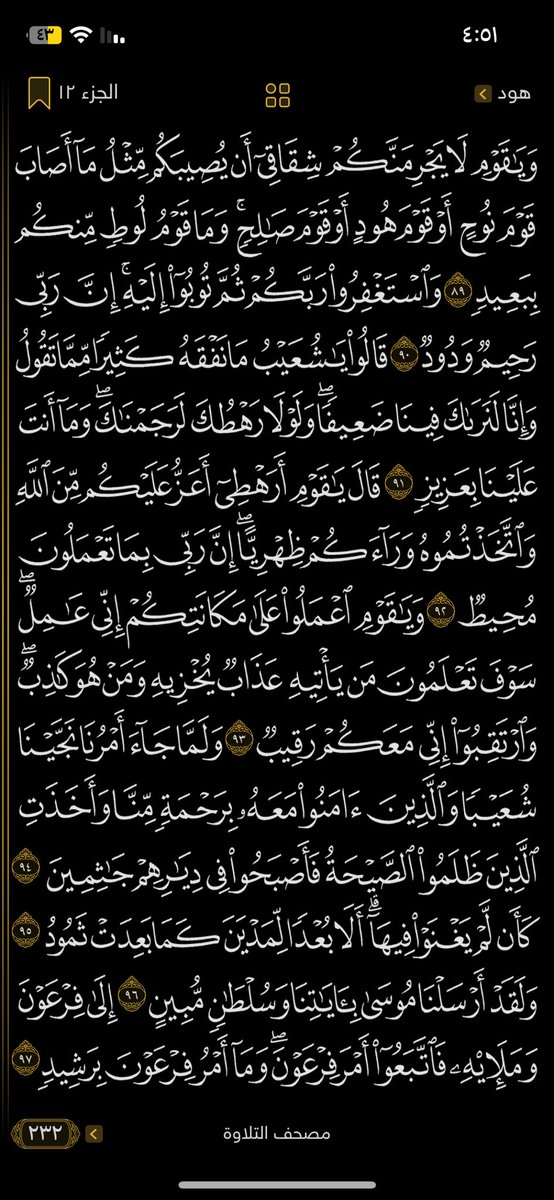 ٤:٥١
٤٣
هود
الجزء ١٢
وَيَٰقَوْمِ لَا يَجْرِمَنَّكُمْ شِقَاقِيٓ أَن يُصِيبَكُم مِّثْلُ مَآ أَصَابَ
قَوْمَ نُوحٍ أَوْ قَوْمَ هُودٍ أَوْ قَوْمَ صَٰلِحٍۚ وَمَا قَوْمُ لُوطٍ مِّنكُم
بِبَعِيدٍ ٨٩ وَٱسْتَغْفِرُوا۟ رَبَّكُمْ ثُمَّ تُوبُوٓا۟ إِلَيْهِۚ إِنَّ رَبِّي
رَحِيمٌ وَدُودٌ ٩٠ قَالُوا۟ يَٰشُعَيْبُ مَا نَفْقَهُ كَثِيرًا مِّمَّا تَقُولُ
وَإِنَّا لَنَرَىٰكَ فِينَا ضَعِيفًاۖ وَلَوْلَا رَهْطُكَ لَرَجَمْنَٰكَۖ وَمَآ أَنتَ
عَلَيْنَا بِعَزِيزٍ ٩١ قَالَ يَٰقَوْمِ أَرَهْطِيٓ أَعَزُّ عَلَيْكُم مِّنَ ٱللَّهِ
وَٱتَّخَذْتُمُوهُ وَرَآءَكُمْ ظِهْرِيًّاۖ إِنَّ رَبِّي بِمَا تَعْمَلُونَ
مُحِيطٌ ٩٢ وَيَٰقَوْمِ ٱعْمَلُوا۟ عَلَىٰ مَكَانَتِكُمْ إِنِّي عَٰمِلٌۖ
سَوْفَ تَعْلَمُونَ مَن يَأْتِيهِ عَذَابٌ يُخْزِيهِ وَمَنْ هُوَ كَٰذِبٌۖ
وَٱرْتَقِبُوٓا۟ إِنِّي مَعَكُمْ رَقِيبٌ ٩٣ وَلَمَّا جَآءَ أَمْرُنَا نَجَّيْنَا
شُعَيْبًا وَٱلَّذِينَ ءَامَنُوا۟ مَعَهُۥ بِرَحْمَةٍ مِّنَّا وَأَخَذَتِ
ٱلَّذِينَ ظَلَمُوا۟ ٱلصَّيْحَةُ فَأَصْبَحُوا۟ فِي دِيَٰرِهِمْ جَٰثِمِينَ ٩٤
كَأَن لَّمْ يَغْنَوْا۟ فِيهَآۗ أَلَا بُعْدًا لِّمَدْيَنَ كَمَا بَعِدَتْ ثَمُودُ ٩٥
وَلَقَدْ أَرْسَلْنَا مُوسَىٰ بِـَٔايَٰتِنَا وَسُلْطَٰنٍ مُّبِينٍ ٩٦ إِلَىٰ فِرْعَوْنَ
وَمَلَإِي۟هِۦ فَٱتَّبَعُوٓا۟ أَمْرَ فِرْعَوْنَۖ وَمَآ أَمْرُ فِرْعَوْنَ بِرَشِيدٍ ٩٧
مصحف التلاوة
٢٣٢